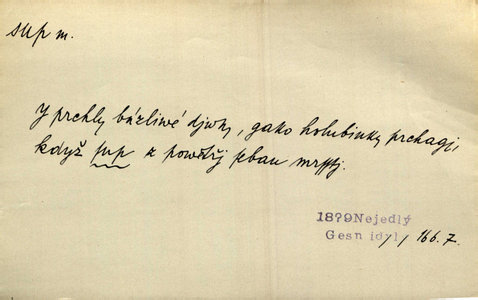 sup m.
Y prchly bázliwé djwky, gako holubinky prchagj,
když sup z powětřj se
1829 Nejedlý
Gesn idyl / 166.7.